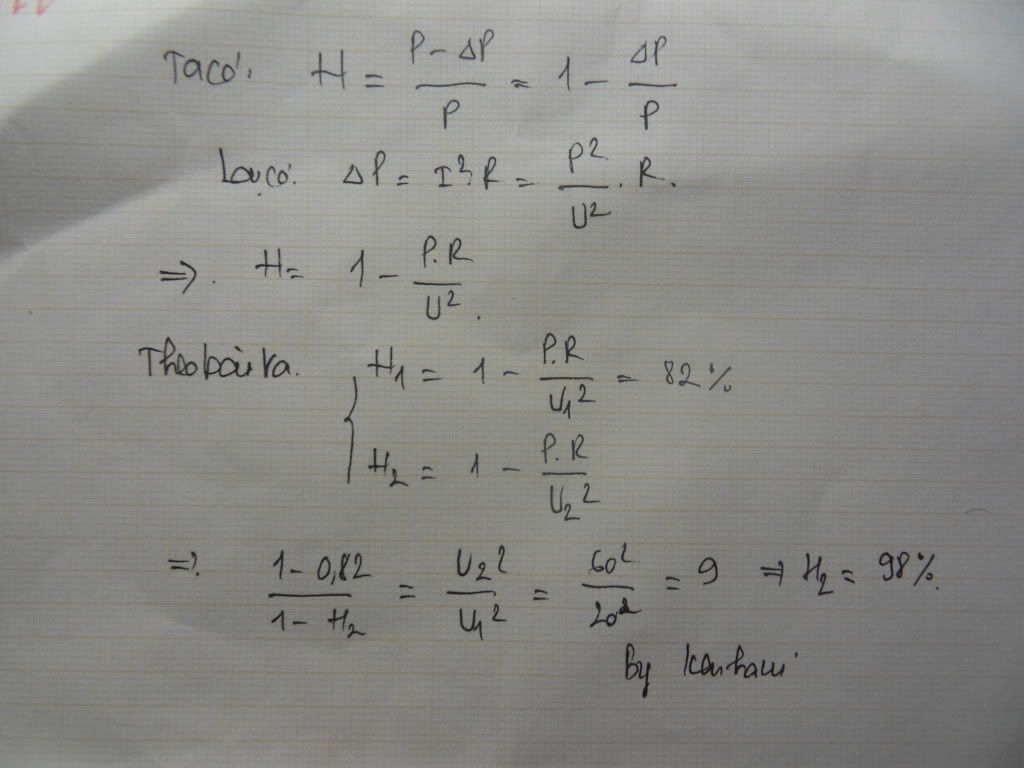 Ta có: H = (P - ΔP)/P = 1 - ΔP/P
Lại có: ΔP = I².R = P²/U² . R.
=> . H = 1 - P.R/U².
Theo bài ra. { H₁ = 1 - P.R/U₁² = 82%
H₂ = 1 - P.R/U₂²
=> (1 - 0,82)/(1 - H₂) = U₂²/U₁² = 60²/20² = 9 => H₂ = 98%.
By